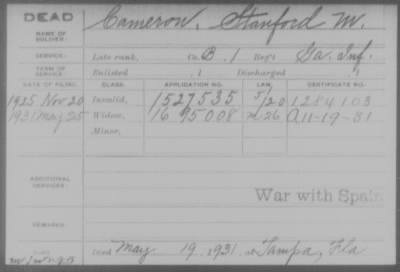 DEAD
NAME OF SOLDIER: Cameron, Stanford M.
SERVICE: Late rank, Co. B. 1 Reg't Ga. Inf.
TERM OF SERVICE: Enlisted , 1 Discharged , 1
DATE OF FILING. CLASS. APPLICATION NO. LAW. CERTIFICATE NO.
1925 Nov 20 Invalid, 1527535 5/20 1284103
1931 May 25 Widow, 1695008 26 A11-19-31
Minor,
ADDITIONAL SERVICES:
War with Spain
REMARKS:
Died May 19, 1931, at Tampa, Fla